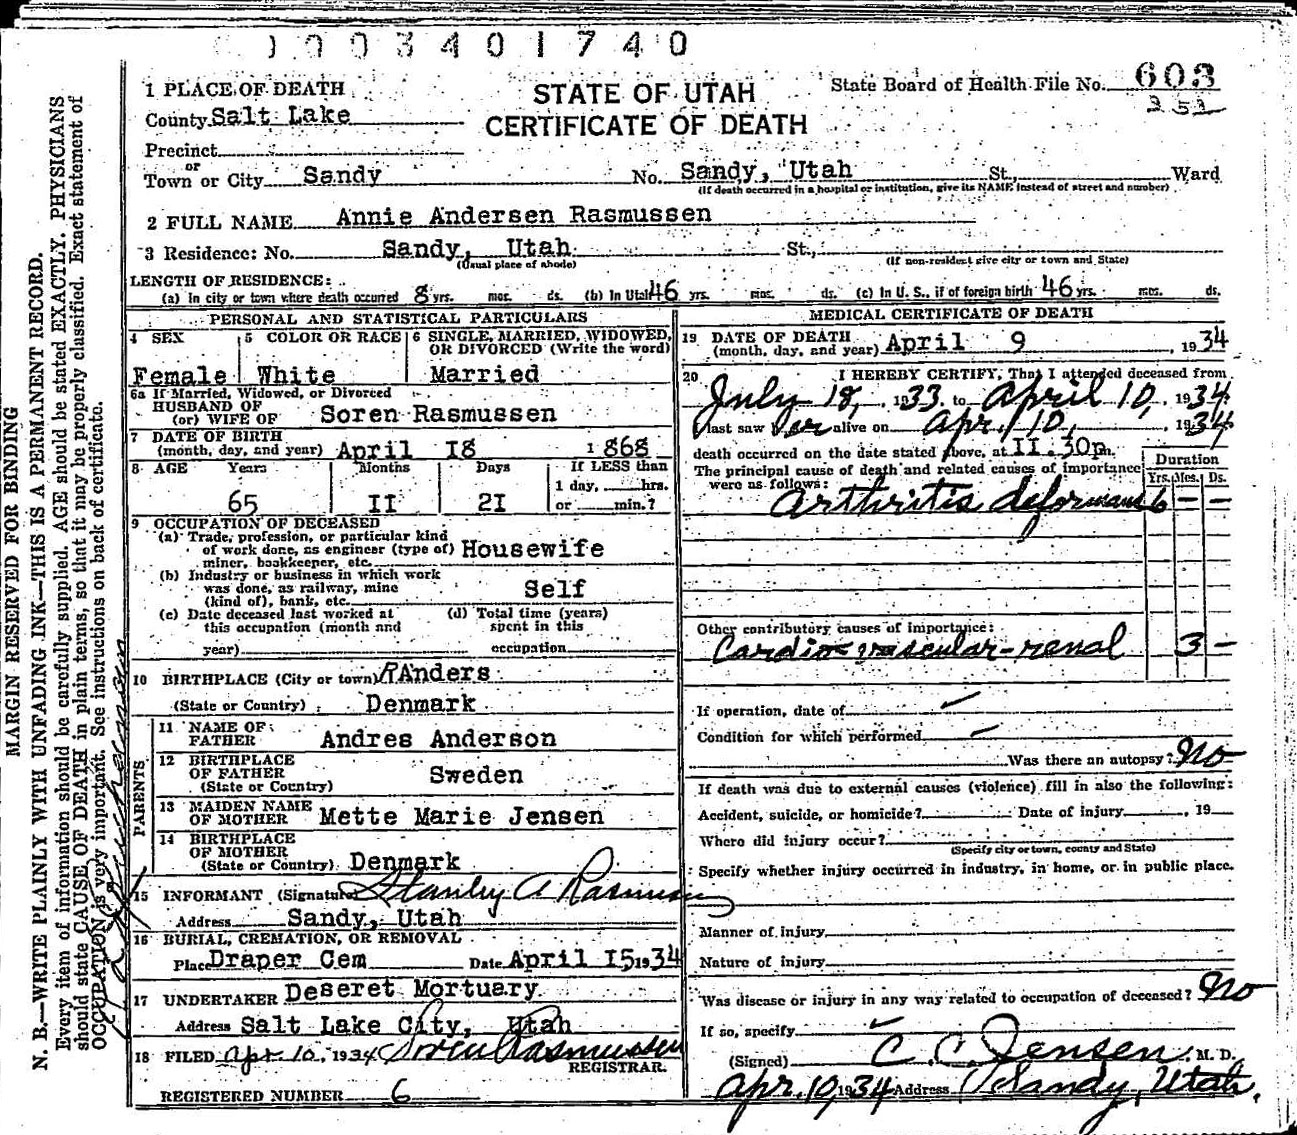 0003401740
1 PLACE OF DEATH
STATE OF UTAH
State Board of Health File No. 603
County Salt Lake
CERTIFICATE OF DEATH
353
Precinct
or
Town or City Sandy No. Sandy, Utah St., Ward
(If death occurred in a hospital or institution, give its NAME instead of street and number)
2 FULL NAME Annie Andersen Rasmussen
3 Residence: No. Sandy, Utah St.,
(Usual place of abode) (If non-resident give city or town and State)
LENGTH OF RESIDENCE:
(a) In city or town where death occurred 8 yrs. mos. ds. (b) In Utah 46 yrs. mos. ds. (c) In U. S., if of foreign birth 46 yrs. mos. ds.
PERSONAL AND STATISTICAL PARTICULARS
4 SEX 5 COLOR OR RACE 6 SINGLE, MARRIED, WIDOWED,
OR DIVORCED (Write the word)
Female White Married
6a If Married, Widowed, or Divorced
HUSBAND OF
(or) WIFE OF Soren Rasmussen
7 DATE OF BIRTH
(month, day, and year) April I8 1 868
8 AGE Years Months Days If LESS than
1 day, hrs.
65 II 2I or min.?
9 OCCUPATION OF DECEASED
(a) Trade, profession, or particular kind
of work done, as engineer (type of) Housewife
miner, bookkeeper, etc.
(b) Industry or business in which work
was done, as railway, mine Self
(kind of), bank, etc.
(c) Date deceased last worked at (d) Total time (years)
this occupation (month and spent in this
year) occupation
10 BIRTHPLACE (City or town) RAnders
(State or Country) Denmark
PARENTS
11 NAME OF
FATHER Andres Anderson
12 BIRTHPLACE
OF FATHER Sweden
(State or Country)
13 MAIDEN NAME
OF MOTHER Mette Marie Jensen
14 BIRTHPLACE
OF MOTHER
(State or Country) Denmark
15 INFORMANT (Signature) Stanley A Rasmussen
Address Sandy, Utah
16 BURIAL, CREMATION, OR REMOVAL
Place Draper Cem Date April I5 1934
17 UNDERTAKER Deseret Mortuary
Address Salt Lake City, Utah
18 FILED Apr 10, 1934 Soren Rasmussen
REGISTRAR.
REGISTERED NUMBER 6
MEDICAL CERTIFICATE OF DEATH
19 DATE OF DEATH
(month, day, and year) April 9, 1934
20 I HEREBY CERTIFY, That I attended deceased from
July 18, 1933 to April 10, 1934
I last saw her alive on Apr. 10, 1934
death occurred on the date stated above, at II:30p m.
The principal cause of death and related causes of importance Duration
were as follows: Yrs. Mos. Ds.
Arthritis deformans 6 — —
Other contributory causes of importance:
Cardio-vascular-renal 3 —
If operation, date of
Condition for which performed
Was there an autopsy? No
If death was due to external causes (violence) fill in also the following:
Accident, suicide, or homicide? Date of injury , 19
Where did injury occur?
(Specify city or town, county and State)
Specify whether injury occurred in industry, in home, or in public place.
Manner of injury
Nature of injury
Was disease or injury in any way related to occupation of deceased? No
If so, specify
(Signed) C. C. Jensen M. D.
Apr. 10, 1934 Address Sandy, Utah.
MARGIN RESERVED FOR BINDING
N. B.—WRITE PLAINLY WITH UNFADING INK—THIS IS A PERMANENT RECORD.
Every item of information should be carefully supplied. AGE should be stated EXACTLY. PHYSICIANS
should state CAUSE OF DEATH in plain terms, so that it may be properly classified. Exact statement of
OCCUPATION is very important. See instructions on back of certificate.